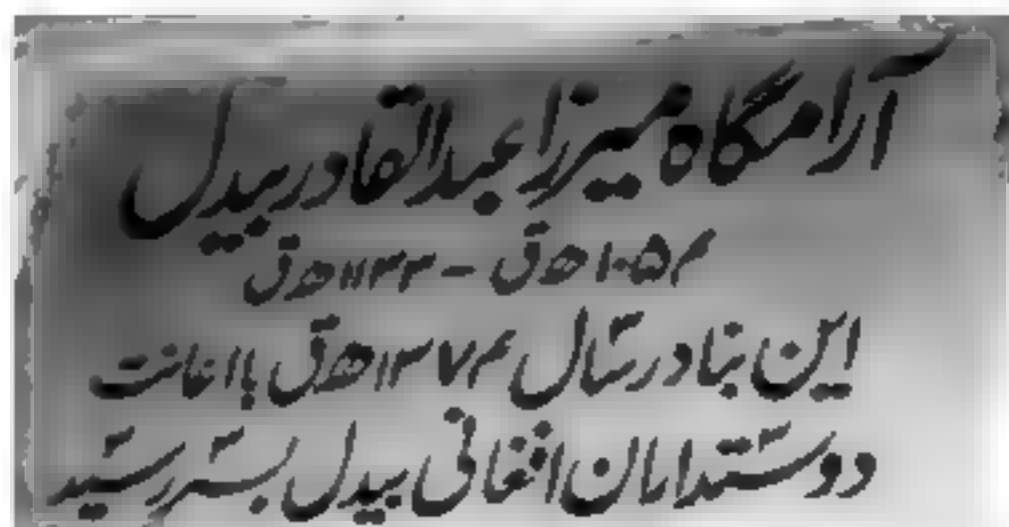 آرامگاه میرزا عبدالقادر بیدل
۱۰۵۴ ه ق - ۱۱۳۳ ه ق
این بنا در سال ۱۳۷۴ ه ق با اعانت
دوستداران افغانی بیدل بسر رسید